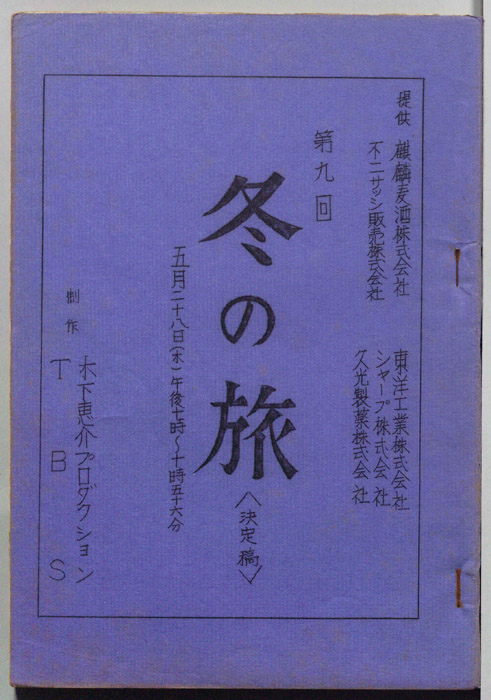 提供
麒麟麦酒株式会社
不二サッシ販売株式会社
東洋工業株式会社
シャープ株式会社
久光製薬株式会社
第九回
冬の旅
〈決定稿〉
五月二十八日(木)午後七時〜十時五十六分
制作
木下恵介プロダクション
TBS